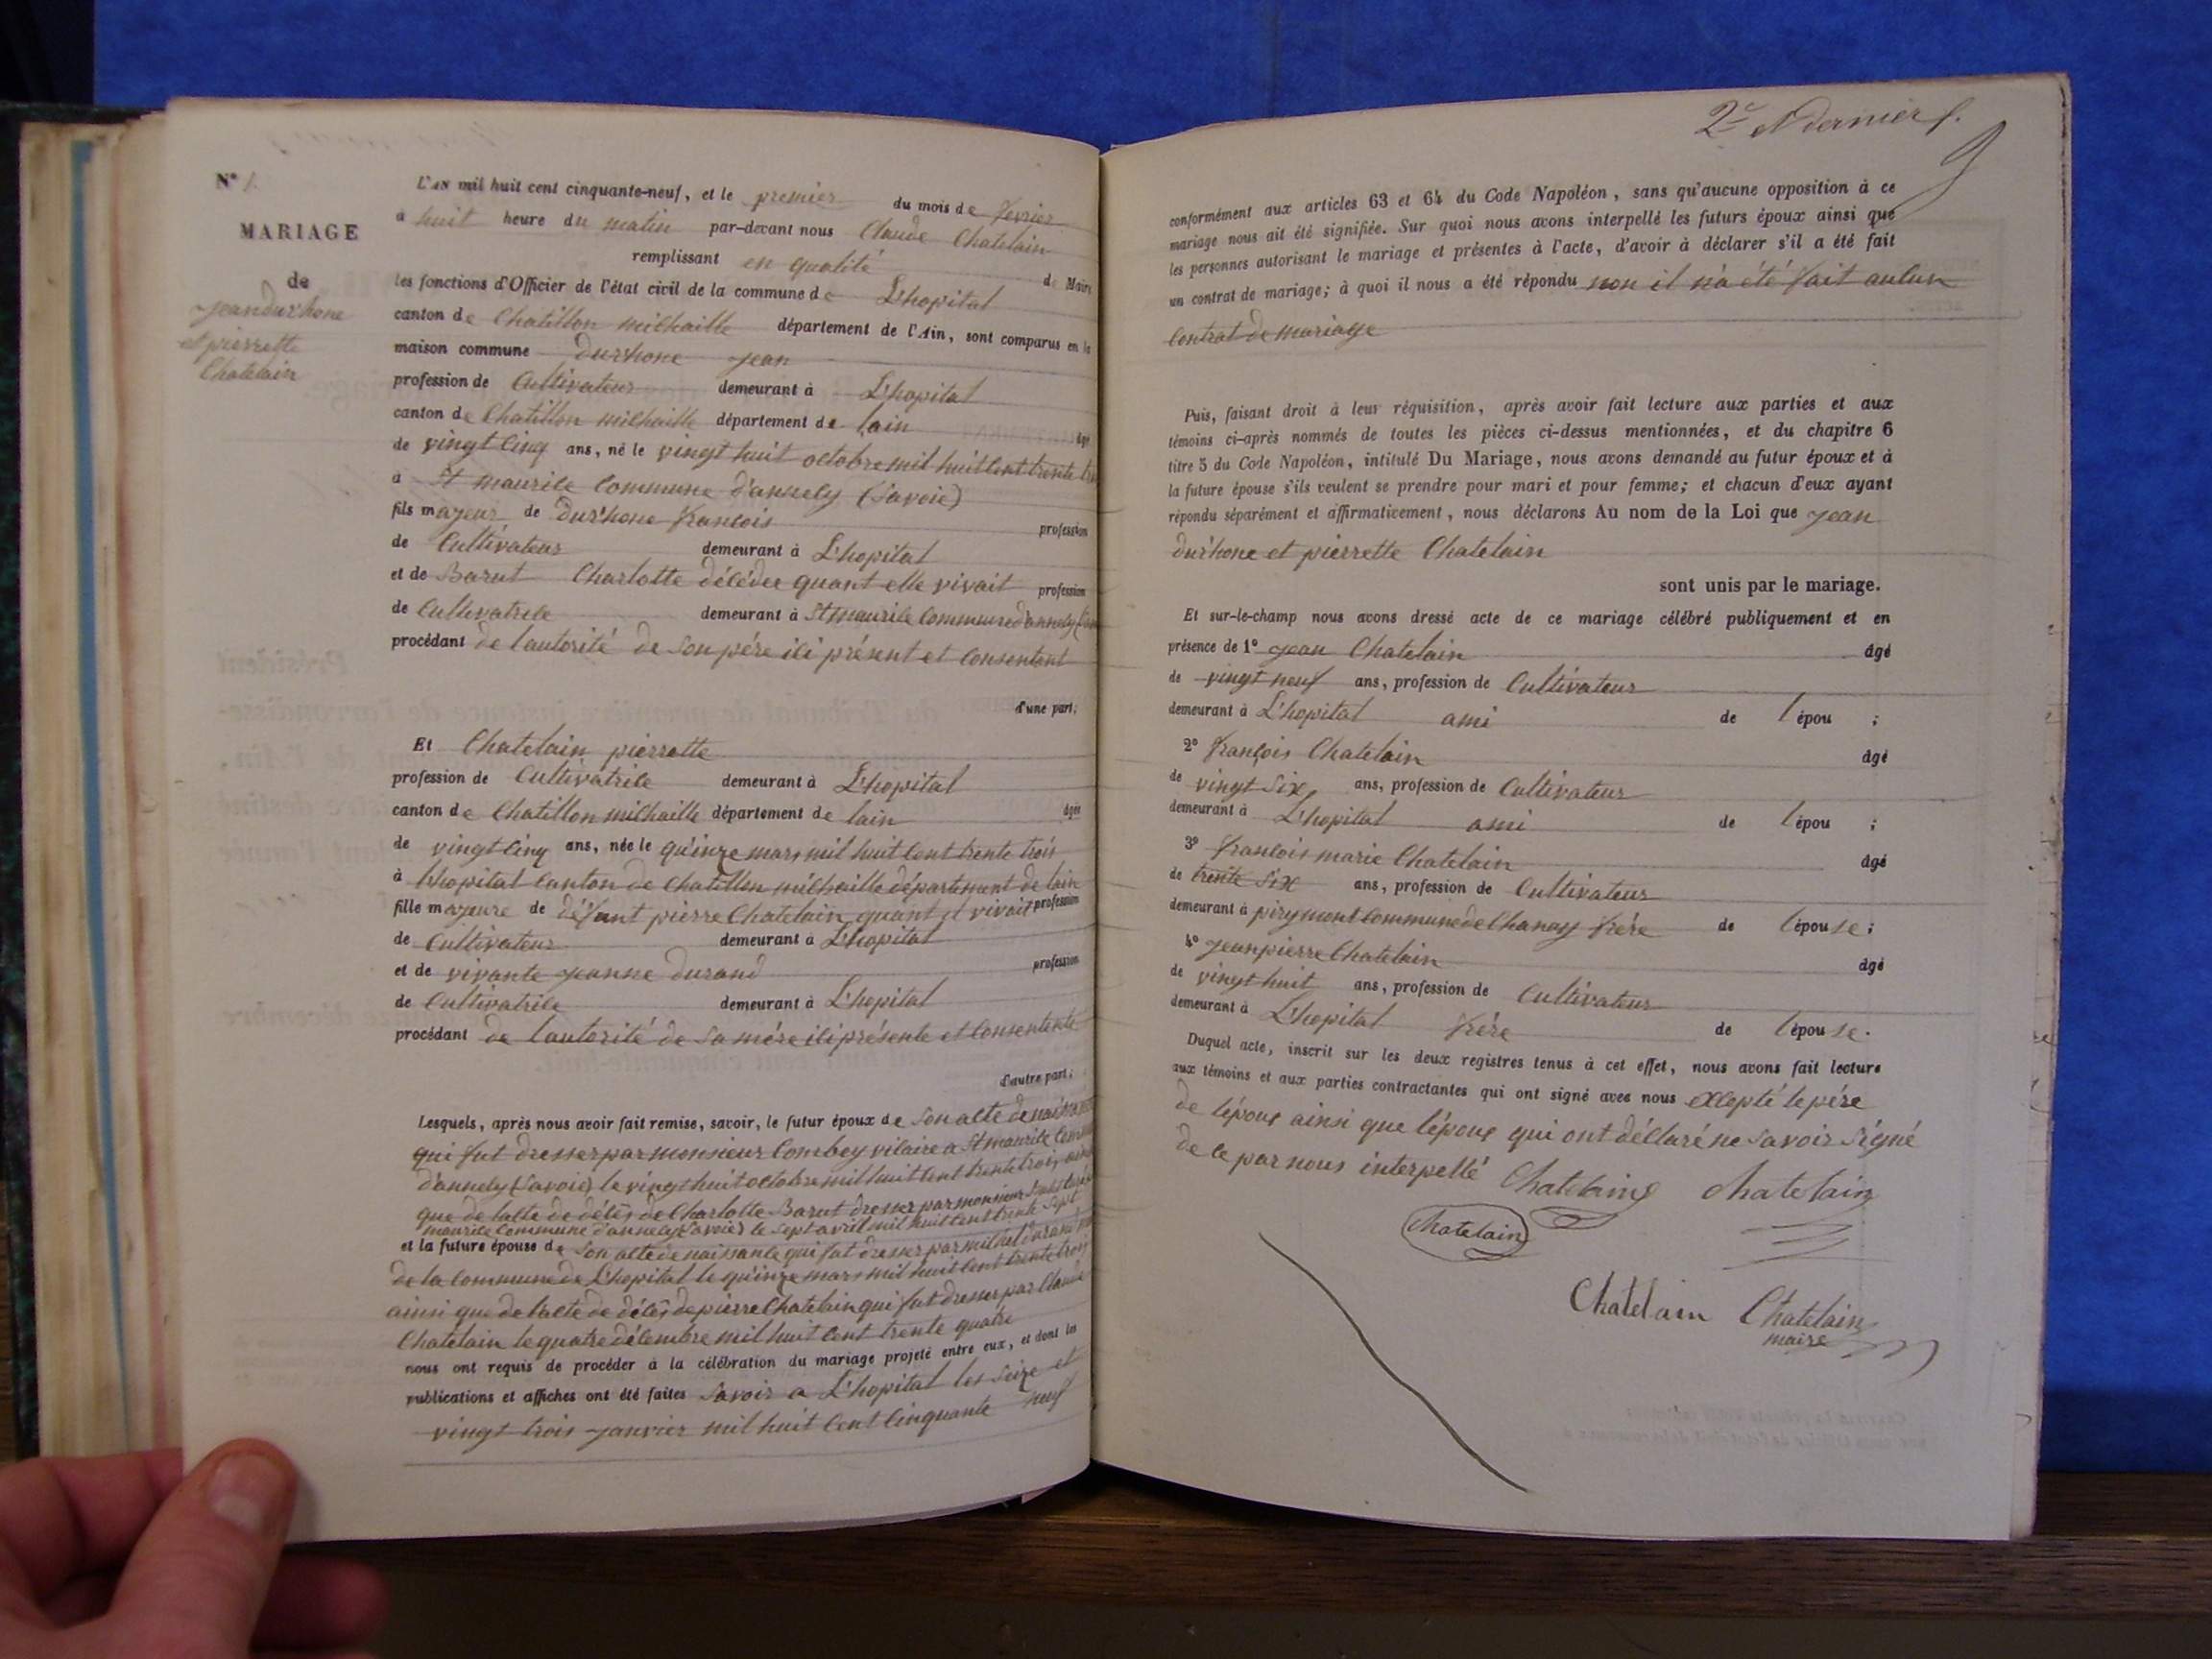 N° 1.
MARIAGE
de
jean dur'hone
et pierrette
Chatelain
L'AN mil huit cent cinquante-neuf, et le premier du mois de fevrier
à huit heure du matin par-devant nous Claude Chatelain
remplissant en qualité de Maire
les fonctions d'Officier de l'état civil de la commune de L'hopital
canton de Chatillon michaille département de l'Ain, sont comparus en la
maison commune dur'hone jean
profession de Cultivateur demeurant à L'hopital
canton de Chatillon michaille département de lain âgé
de vingt cinq ans, né le vingt huit octobre mil huit cent trente
à St maurice commune d'annecy (Savoie)
fils majeur de dur'hone francois profession
de Cultivateur demeurant à L'hopital
et de Barut Charlotte décédée quant elle vivait profession
de Cultivatrice demeurant à St maurice commune d'annecy
procédant de lautorité de son pére ici présent et consentent
d'une part;
Et Chatelain pierrette
profession de Cultivatrice demeurant à L'hopital
canton de Chatillon michaille département de lain âgée
de vingt cinq ans, née le qu'inze mars mil huit cent trente trois
à lhopital canton de Chatillon michaille département de lain
fille majeure de défunt pierre Chatelain quant il vivait profession
de Cultivateur demeurant à L'hopital
et de vivante jeanne durand profession
de Cultivatrice demeurant à L'hopital
procédant de lautorité de sa mére ici présente et consentente
d'autre part;
Lesquels, après nous avoir fait remise, savoir, le futur époux de son acte de naissance
qui fut dresser par monsieur Combey vicaire a St maurice
d'annecy (Savoie) le vingt huit octobre mil huit cent trente trois
que de lacte de décès de Charlotte Barut dresser par monsieur
maurice commune d'annecy (Savoie) le sept avril mil huit cent trente sept
et la future épouse de son acte de naissance qui fut dresser par michel durand
de la commune de L'hopital le qu'inze mars mil huit cent trente trois
ainsi que de lacte de décès de pierre Chatelain qui fut dresser par Claude
Chatelain le quatre décembre mil huit cent trente quatre
nous ont requis de procéder à la célébration du mariage projeté entre eux, et dont les
publications et affiches ont été faites savoir a L'hopital les seize et
vingt trois janvier mil huit cent cinquante neuf
2e et dernier f.
conformément aux articles 63 et 64 du Code Napoléon, sans qu'aucune opposition à ce
mariage nous ait été signifiée. Sur quoi nous avons interpellé les futurs époux ainsi que
les personnes autorisant le mariage et présentes à l'acte, d'avoir à déclarer s'il a été fait
un contrat de mariage; à quoi il nous a été répondu non il n'a été fait aucun
contrat de mariage
Puis, faisant droit à leur réquisition, après avoir fait lecture aux parties et aux
témoins ci-après nommés de toutes les pièces ci-dessus mentionnées, et du chapitre 6
titre 5 du Code Napoléon, intitulé Du Mariage, nous avons demandé au futur époux et à
la future épouse s'ils veulent se prendre pour mari et pour femme; et chacun d'eux ayant
répondu séparément et affirmativement, nous déclarons Au nom de la Loi que jean
dur'hone et pierrette Chatelain
sont unis par le mariage.
Et sur-le-champ nous avons dressé acte de ce mariage célébré publiquement et en
présence de 1° jean Chatelain âgé
de vingt neuf ans, profession de Cultivateur
demeurant à L'hopital ami de l'épou ;
2° françois Chatelain âgé
de vingt six ans, profession de Cultivateur
demeurant à L'hopital ami de l'épou ;
3° francois marie Chatelain âgé
de trente six ans, profession de Cultivateur
demeurant à pirymont commune de Chanay frére de l'épouse;
4° jean pierre Chatelain âgé
de vingt huit ans, profession de Cultivateur
demeurant à L'hopital frére de l'épouse.
Duquel acte, inscrit sur les deux registres tenus à cet effet, nous avons fait lecture
aux témoins et aux parties contractantes qui ont signé avec nous excepté le pére
de l'épous ainsi que l'épous qui ont déclaré ne savoir signé
de ce par nous interpellé Chatelain Chatelain
Chatelain
Chatelain Chatelain
maire